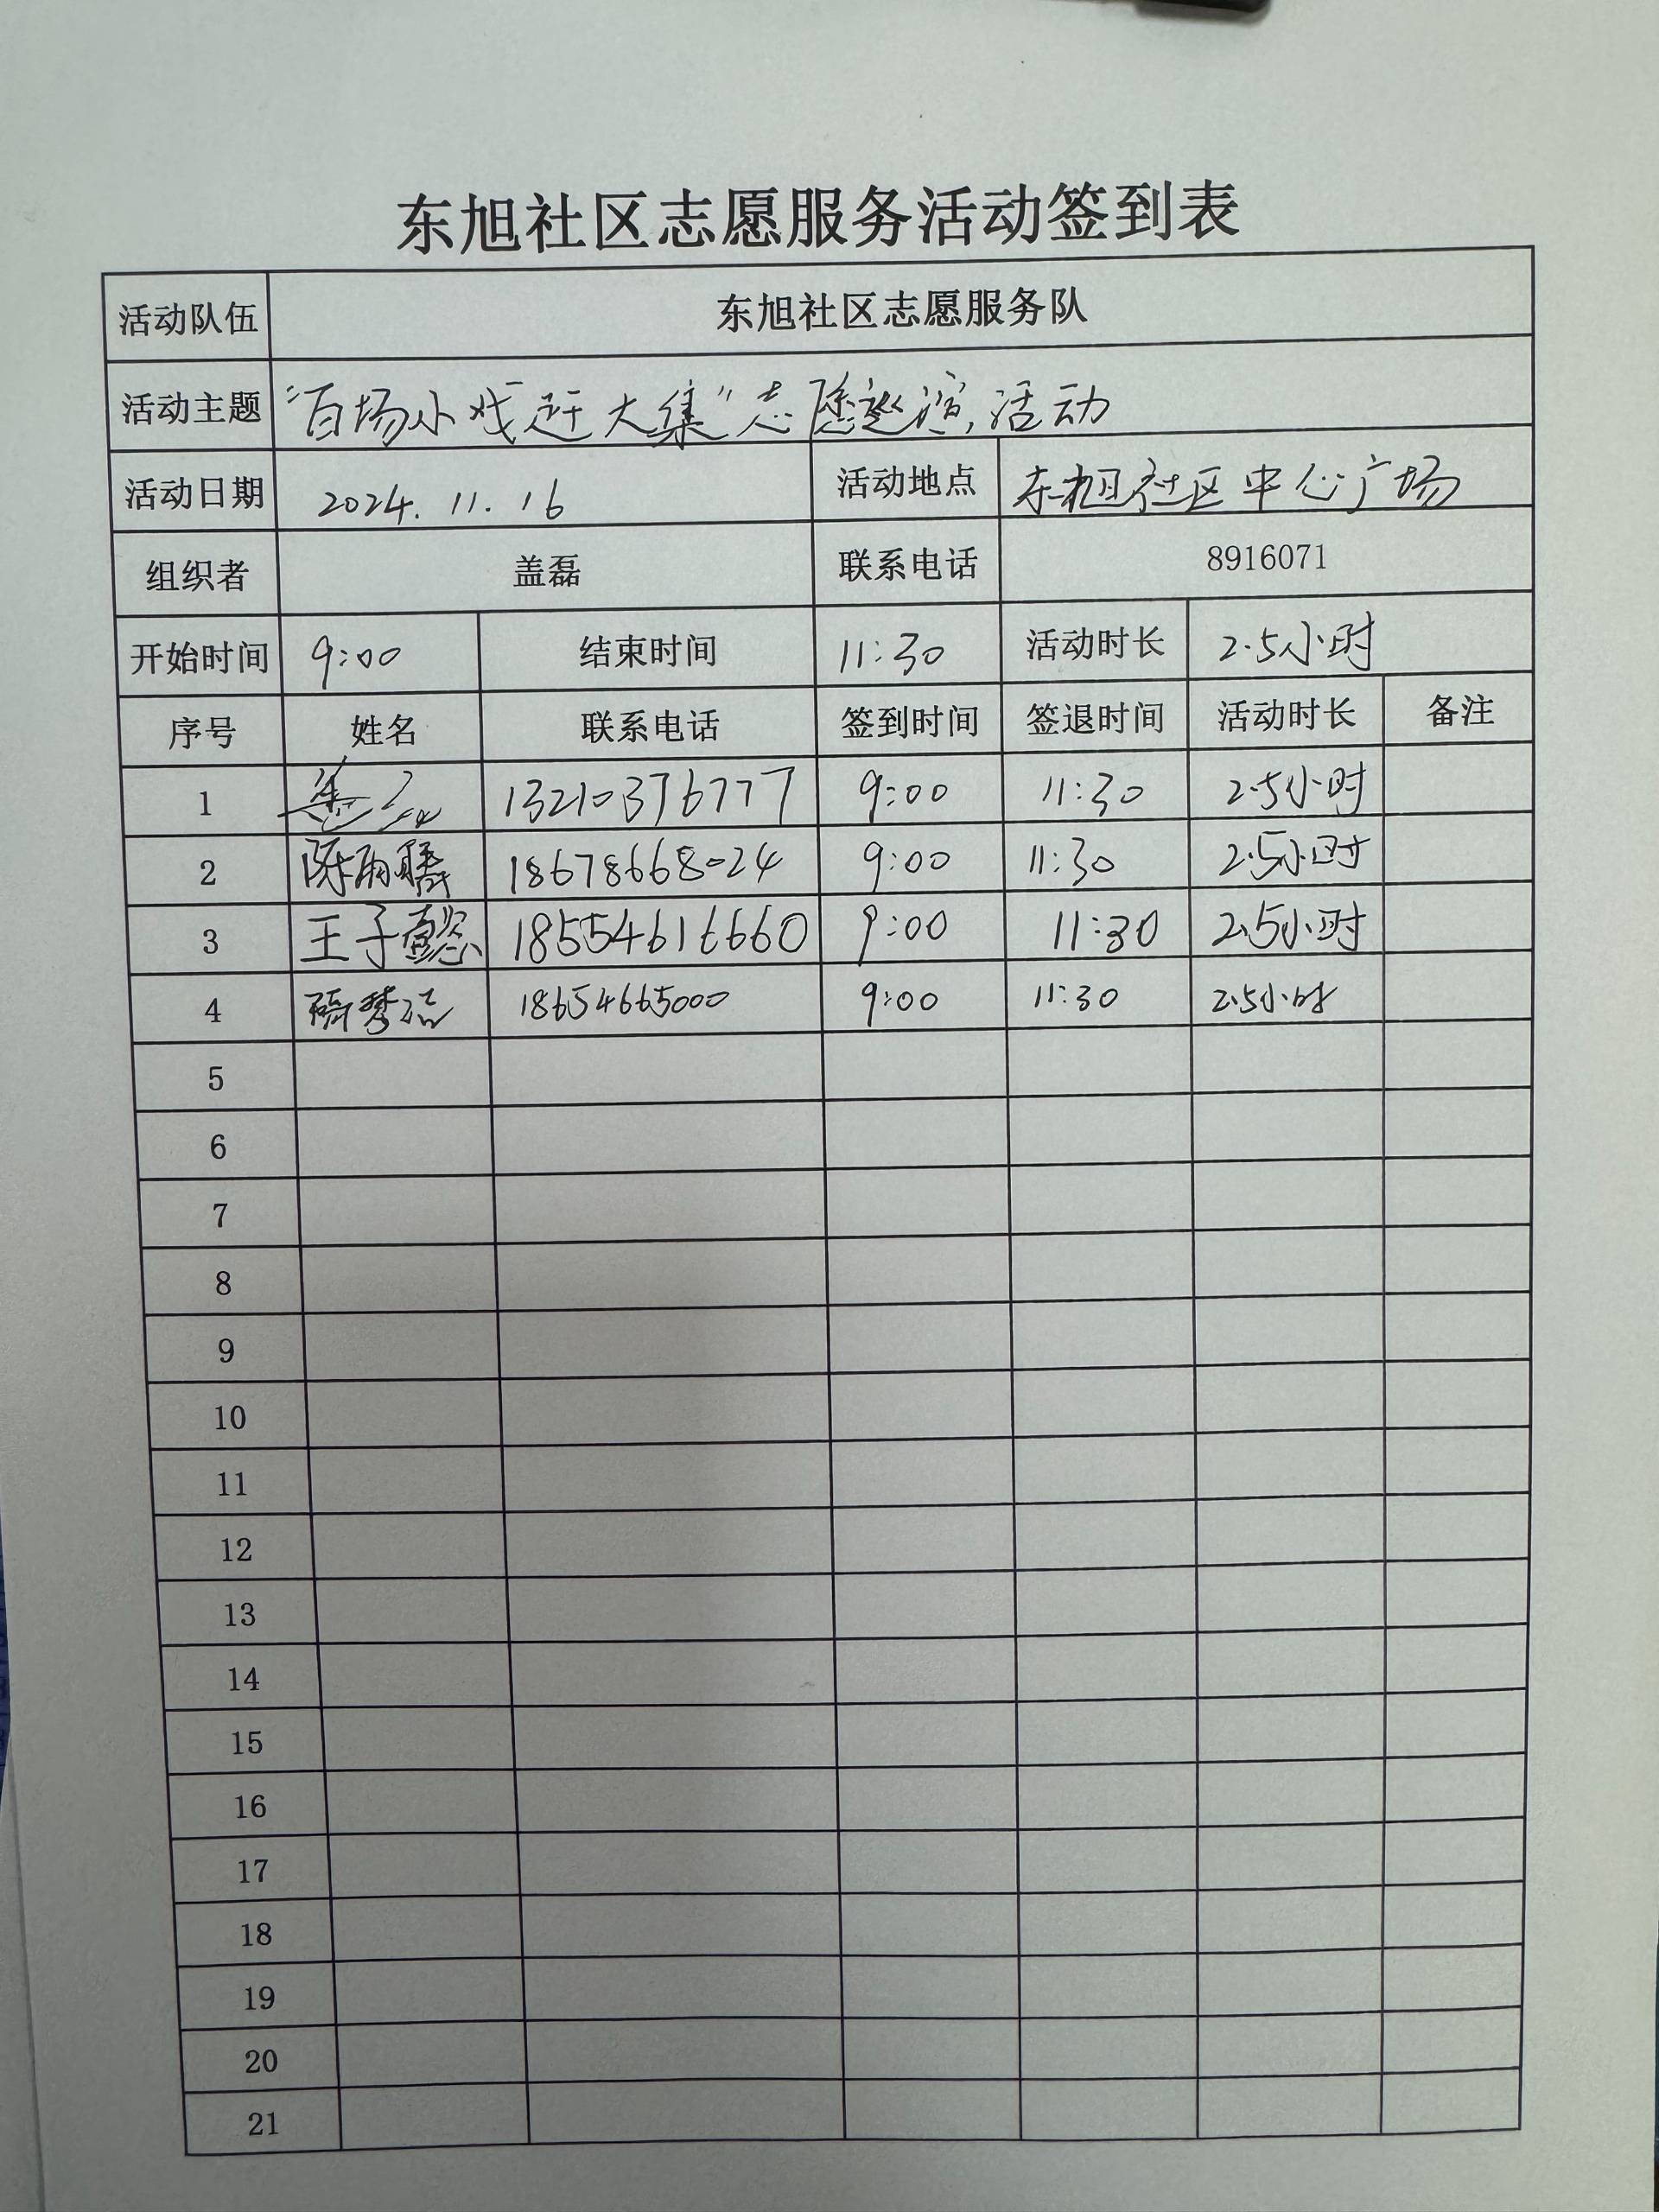 东旭社区志愿服务活动签到表
活动队伍 东旭社区志愿服务队
活动主题 “百场小戏赶大集”志愿巡演,活动
活动日期 2024.11.16 活动地点 东旭社区中心广场
组织者 盖磊 联系电话 8916071
开始时间 9:00 结束时间 11:30 活动时长 2.5小时
序号 姓名 联系电话 签到时间 签退时间 活动时长 备注
1 13210376777 9:00 11:30 2.5小时
2 陈雨 18678668024 9:00 11:30 2.5小时
3 王子懿 18554616660 9:00 11:30 2.5小时
4 梦洁 18654665000 9:00 11:30 2.5小时
5
6
7
8
9
10
11
12
13
14
15
16
17
18
19
20
21